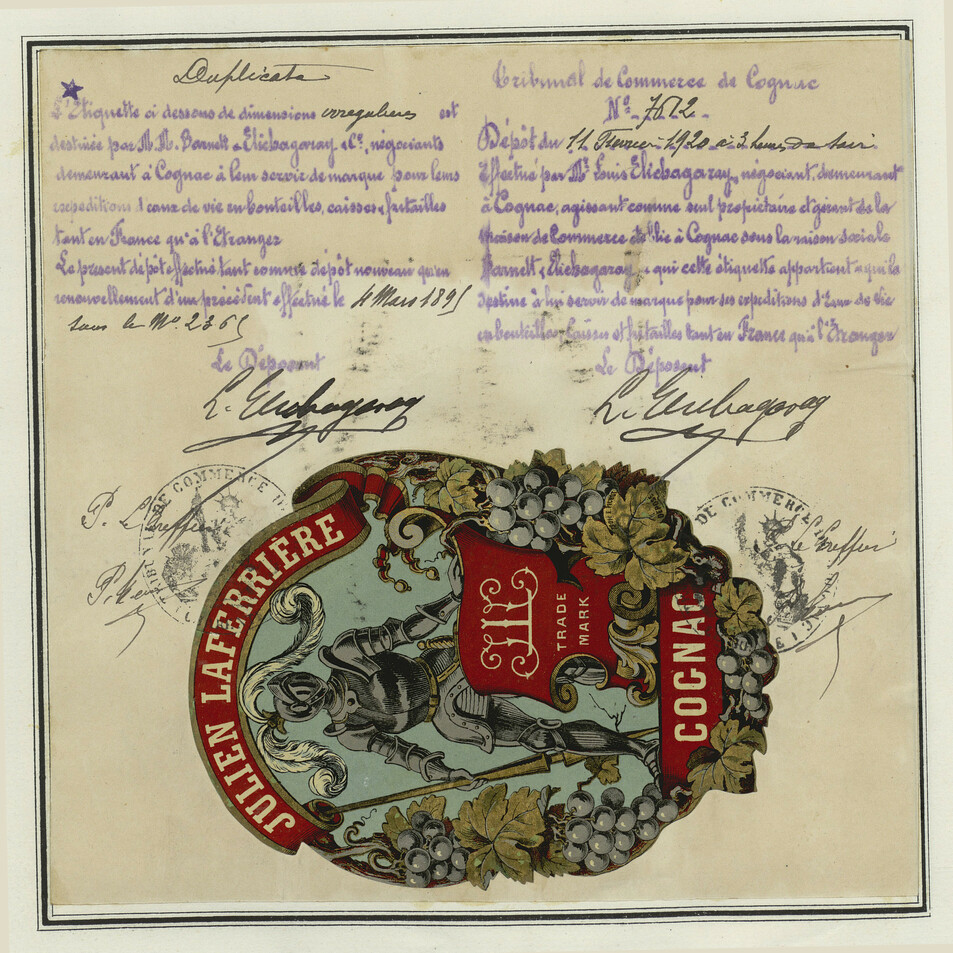 Duplicata
L'Etiquette ci dessous de dimensions irregulieres est
destinée par M.M. Barnett & Elichagaray & Cie, négociants
demeurant à Cognac à leur servir de marque pour leurs
expéditions d'eaux de vie en bouteilles, caisses & futailles
tant en France qu'à l'Etranger
Le présent dépôt effectué tant comme dépôt nouveau qu'en
renouvellement d'un précédent effectué le 4 Mars 1895
sous le No. 2365
Le Déposant
L. Elichagaray
Tribunal de Commerce de Cognac
No. 7612
Dépôt du 11 Fevrier 1920 à 3 heures du soir
Effectué par Mr Louis Elichagaray, négociant, demeurant
à Cognac, agissant comme seul propriétaire et gérant de la
Maison de Commerce établie à Cognac sous la raison sociale
Barnett & Elichagaray & qui cette étiquette appartient & qui la
destine à lui servir de marque pour ses expéditions d'Eaux de Vie
en bouteilles, caisses et futailles tant en France qu'à l'Etranger
Le Déposant
L. Elichagaray
DE COMMERCE
P. Le Greffier
DE COMMERCE
Le Greffier
JULIEN LAFERRIÈRE
TRADE
MARK
COGNAC